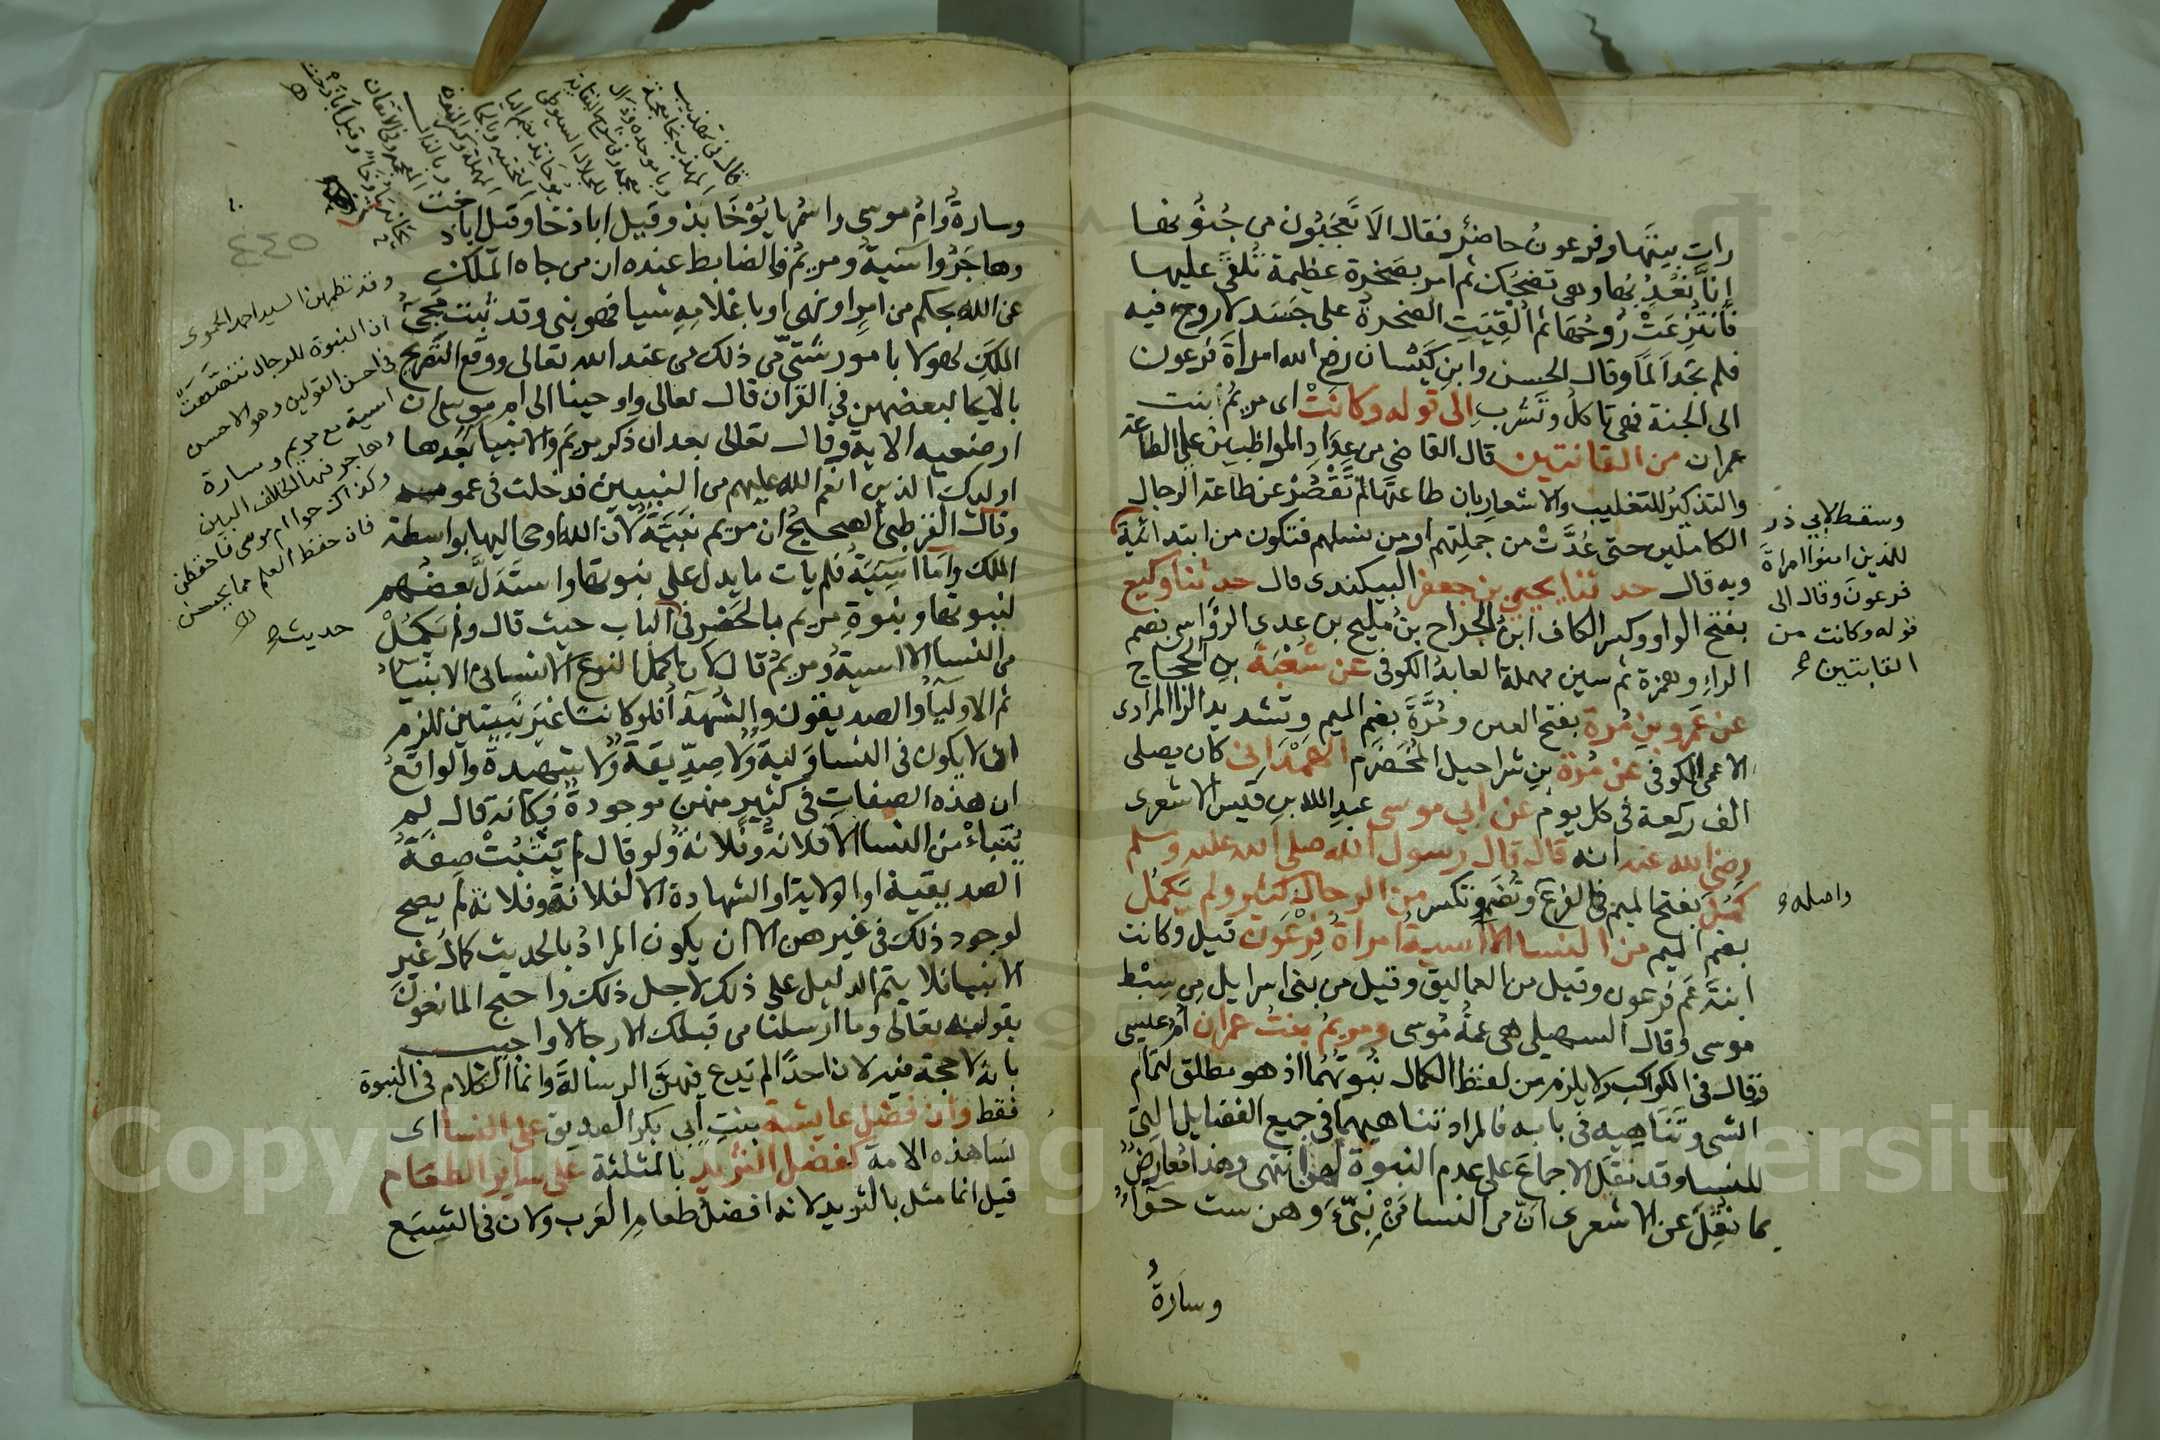 رات بيتها وفرعون حاضر فقال الا تعجبون من جنونها
انا نعذبها وهى تضحك ثم امر بصخرة عظيمة تلقى عليها
فانتزعت روحها ثم القيت الصخرة على جسد لا روح فيه
فلم تجد الما وقال الحسن وابن كيسان رفع الله امراة فرعون
الى الجنة فهى تاكل وتشرب الى قوله وكانت اى مريم ابنت
عمران من القانتين قال القاضى من عداد المواظبين على الطاعة
والتذكير للتغليب والاشعار بان طاعتها لم تقصر عن طاعة الرجال
الكاملين حتى عدت من جملتهم او من نسلهم فتكون من ابتدائية
وبه قال حدثنا يحيى بن جعفر البيكندى قال حدثنا وكيع
بفتح الواو وكسر الكاف ابن الجراح بن مليح بن عدى الرؤاسى بضم
الراء وهمزة ثم سين مهملة العابد الكوفى عن شعبة بن الحجاج
عن عمرو بن مرة بفتح العين ومرة بضم الميم وتشديد الرا المرادى
الاعمى الكوفى عن مرة بن شراحيل المخضرم الهمدانى كان يصلى
الف ركعة فى كل يوم عن ابي موسى عبد الله بن قيس الاشعرى
رضى الله عنه انه قال قال رسول الله صلى الله عليه وسلم
كمل بفتح الميم فى الفرع وتضم وتكسر من الرجال كثير ولم يكمل
بضم الميم من النسا الا آسية امراة فرعون قيل وكانت
ابنة عم فرعون وقيل من العماليق وقيل من بنى اسرايل من سبط
موسى وقال السهيلى هى عمة موسى ومريم بنت عمران ام عيسى
وقال فى الكواكب ولا يلزم من لفظ الكمال نبوتهما اذ هو مطلق لتمام
الشى وتناهيه فى بابه فالمراد تناهيهما فى جميع الفضايل التى
للنسا وقد نقل الاجماع على عدم النبوة لهن انتهى وهذا معارض
بما نقل عن الاشعرى ان من النسا من نبئ وهن ست حواء
وسارة
وسقط لابي ذر
للذين امنوا امراة
فرعون وقال الى
قوله وكانت من
القانتين
واصله
وسارة وام موسى واسمها يوخابذ وقيل اباذخا وقيل اباذخت
وهاجر وآسية ومريم والضابط عنده ان من جاه الملك
عن الله بحكم من امر او نهى او باعلامه شيا فهو نبى وقد ثبت مجئ
الملك لهولا بامور شتى من ذلك من عند الله تعالى ووقع التصريح
بالايحا لبعضهن فى القران قال تعالى واوحينا الى ام موسى ان
ارضعيه الاية وقال تعالى بعد ان ذكر مريم والانبيا بعدها
اوليك الذين انعم الله عليهم من النبيين فدخلت فى عمومه
وقال القرطبى الصحيح ان مريم نبية لان الله اوحى اليها بواسطة
الملك واما آسية فلم يات ما يدل على نبوتها واستدل بعضهم
لنبوتها ونبوة مريم بالحصر فى الباب حيث قال ولم يكمل
من النسا الا اسية ومريم قال لان اكمل النوع الانسانى الانبياء
ثم الاولياء والصديقون والشهدآ فلو كانتا غير نبيتين للزم
ان لا يكون فى النسا ولية ولا صديقة ولا شهيدة والواقع
ان هذه الصفات فى كثير منهن موجودة فكانه قال لم
ينبا من النسا الا فلانة وفلانة ولو قال لم تثبت صفة
الصديقية او الولاية او الشهادة الا لفلانة وفلانة لم يصح
لوجود ذلك فى غيرهن الا ان يكون المراد بالحديث كمال غير
الانبيا فلا يتم الدليل على ذلك لاجل ذلك واحتج المانعون
بقوله تعالى وما ارسلنا من قبلك الا رجالا واجيب
بانه لا حجة فيه لان احدا لم يدع فيهن الرسالة وانما الكلام فى النبوة
فقط وان فضل عايشة بنت ابي بكر الصديق على النسا اى
نسا هذه الامة كفضل الثريد بالمثلثة على ساير الطعام
قيل انما مثل بالثريد لانه افضل طعام العرب ولان فى الشبع
٤٤٥
وقد نظمهن السيد احمد الحموى
ان النبوة للرجال تخصصت
فى احسن القولين وهو الاحسن
اسية مع مريم وسارة
وهاجر فيها الخلاف البين
وكذاك حوا ام موسى فاحفظن
فان حفظ العلم مما يحسن
حديث
Copyright © King Saud University